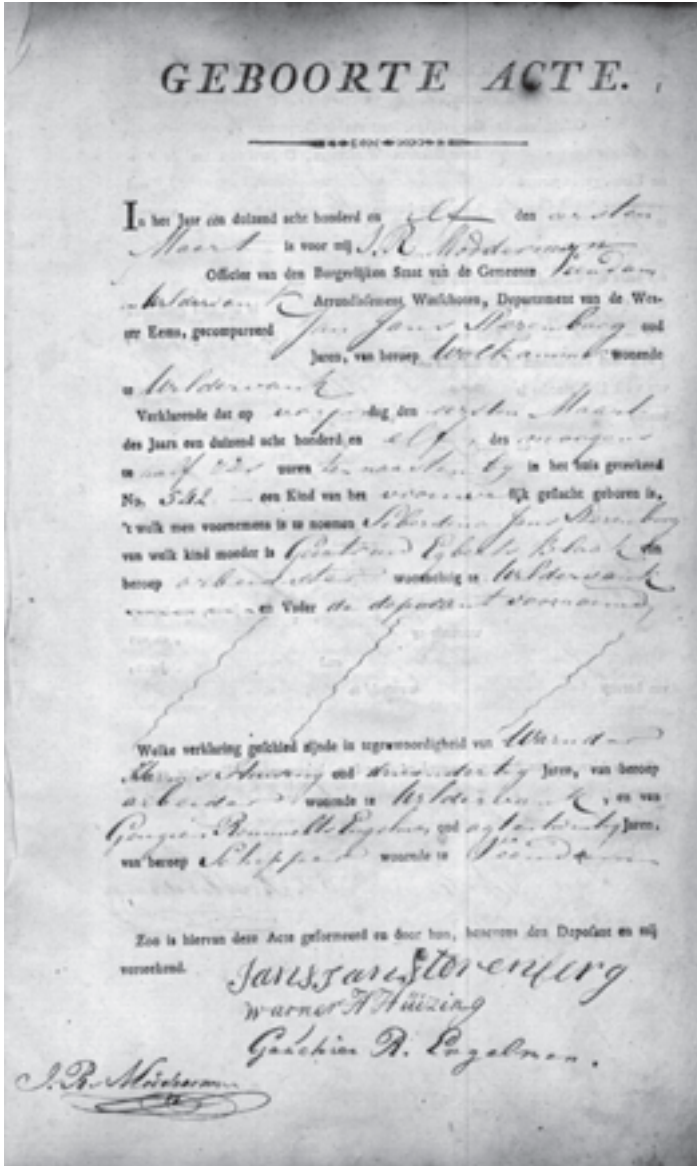 GEBOORTE ACTE.
In het Jaar een duizend acht honderd en elf den eersten
Maert is voor mij J. R. Modderman
Officier van den Burgerlijken Staat van de Gemeente Veendam
Wildervank Arrondissement Winschoten, Departement van de Wes-
ter Eems, gecompareerd Jan Jans Storenberg oud
Jaren, van beroep wonende
te Wildervank
Verklarende dat op dag den eersten Maart
des Jaars een duizend acht honderd en elf des morgens
te uuren in het huis geteekend
No. 542 een Kind van het vrouwe lijk geslacht geboren is,
't welk men voornemens is te noemen Jans Storenberg
van welk kind moeder is Egberts Blaak van
beroep arbeidster woonachtig te Wildervank
en Vader de deposant voornoemd
Welke verklaring geschied zijnde in tegenwoordigheid van
oud Jaren, van beroep
arbeider woonende te Wildervank, en van
Engelman oud Jaren,
van beroep Schipper woonende te Veendam
Zoo is hiervan deze Acte geformeerd en door hun, benevens den Deposant en mij
verteekend.
Jans Jans Storenberg
Warner H Huizing
Geuchien R. Engelman.
J. R. Modderman